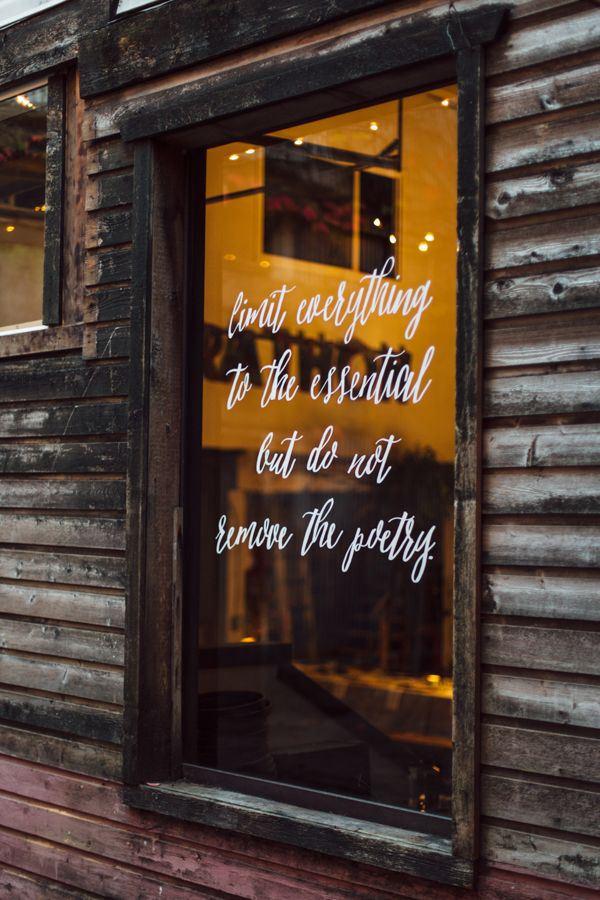 limit everything
to the essential
but do not
remove the poetry.